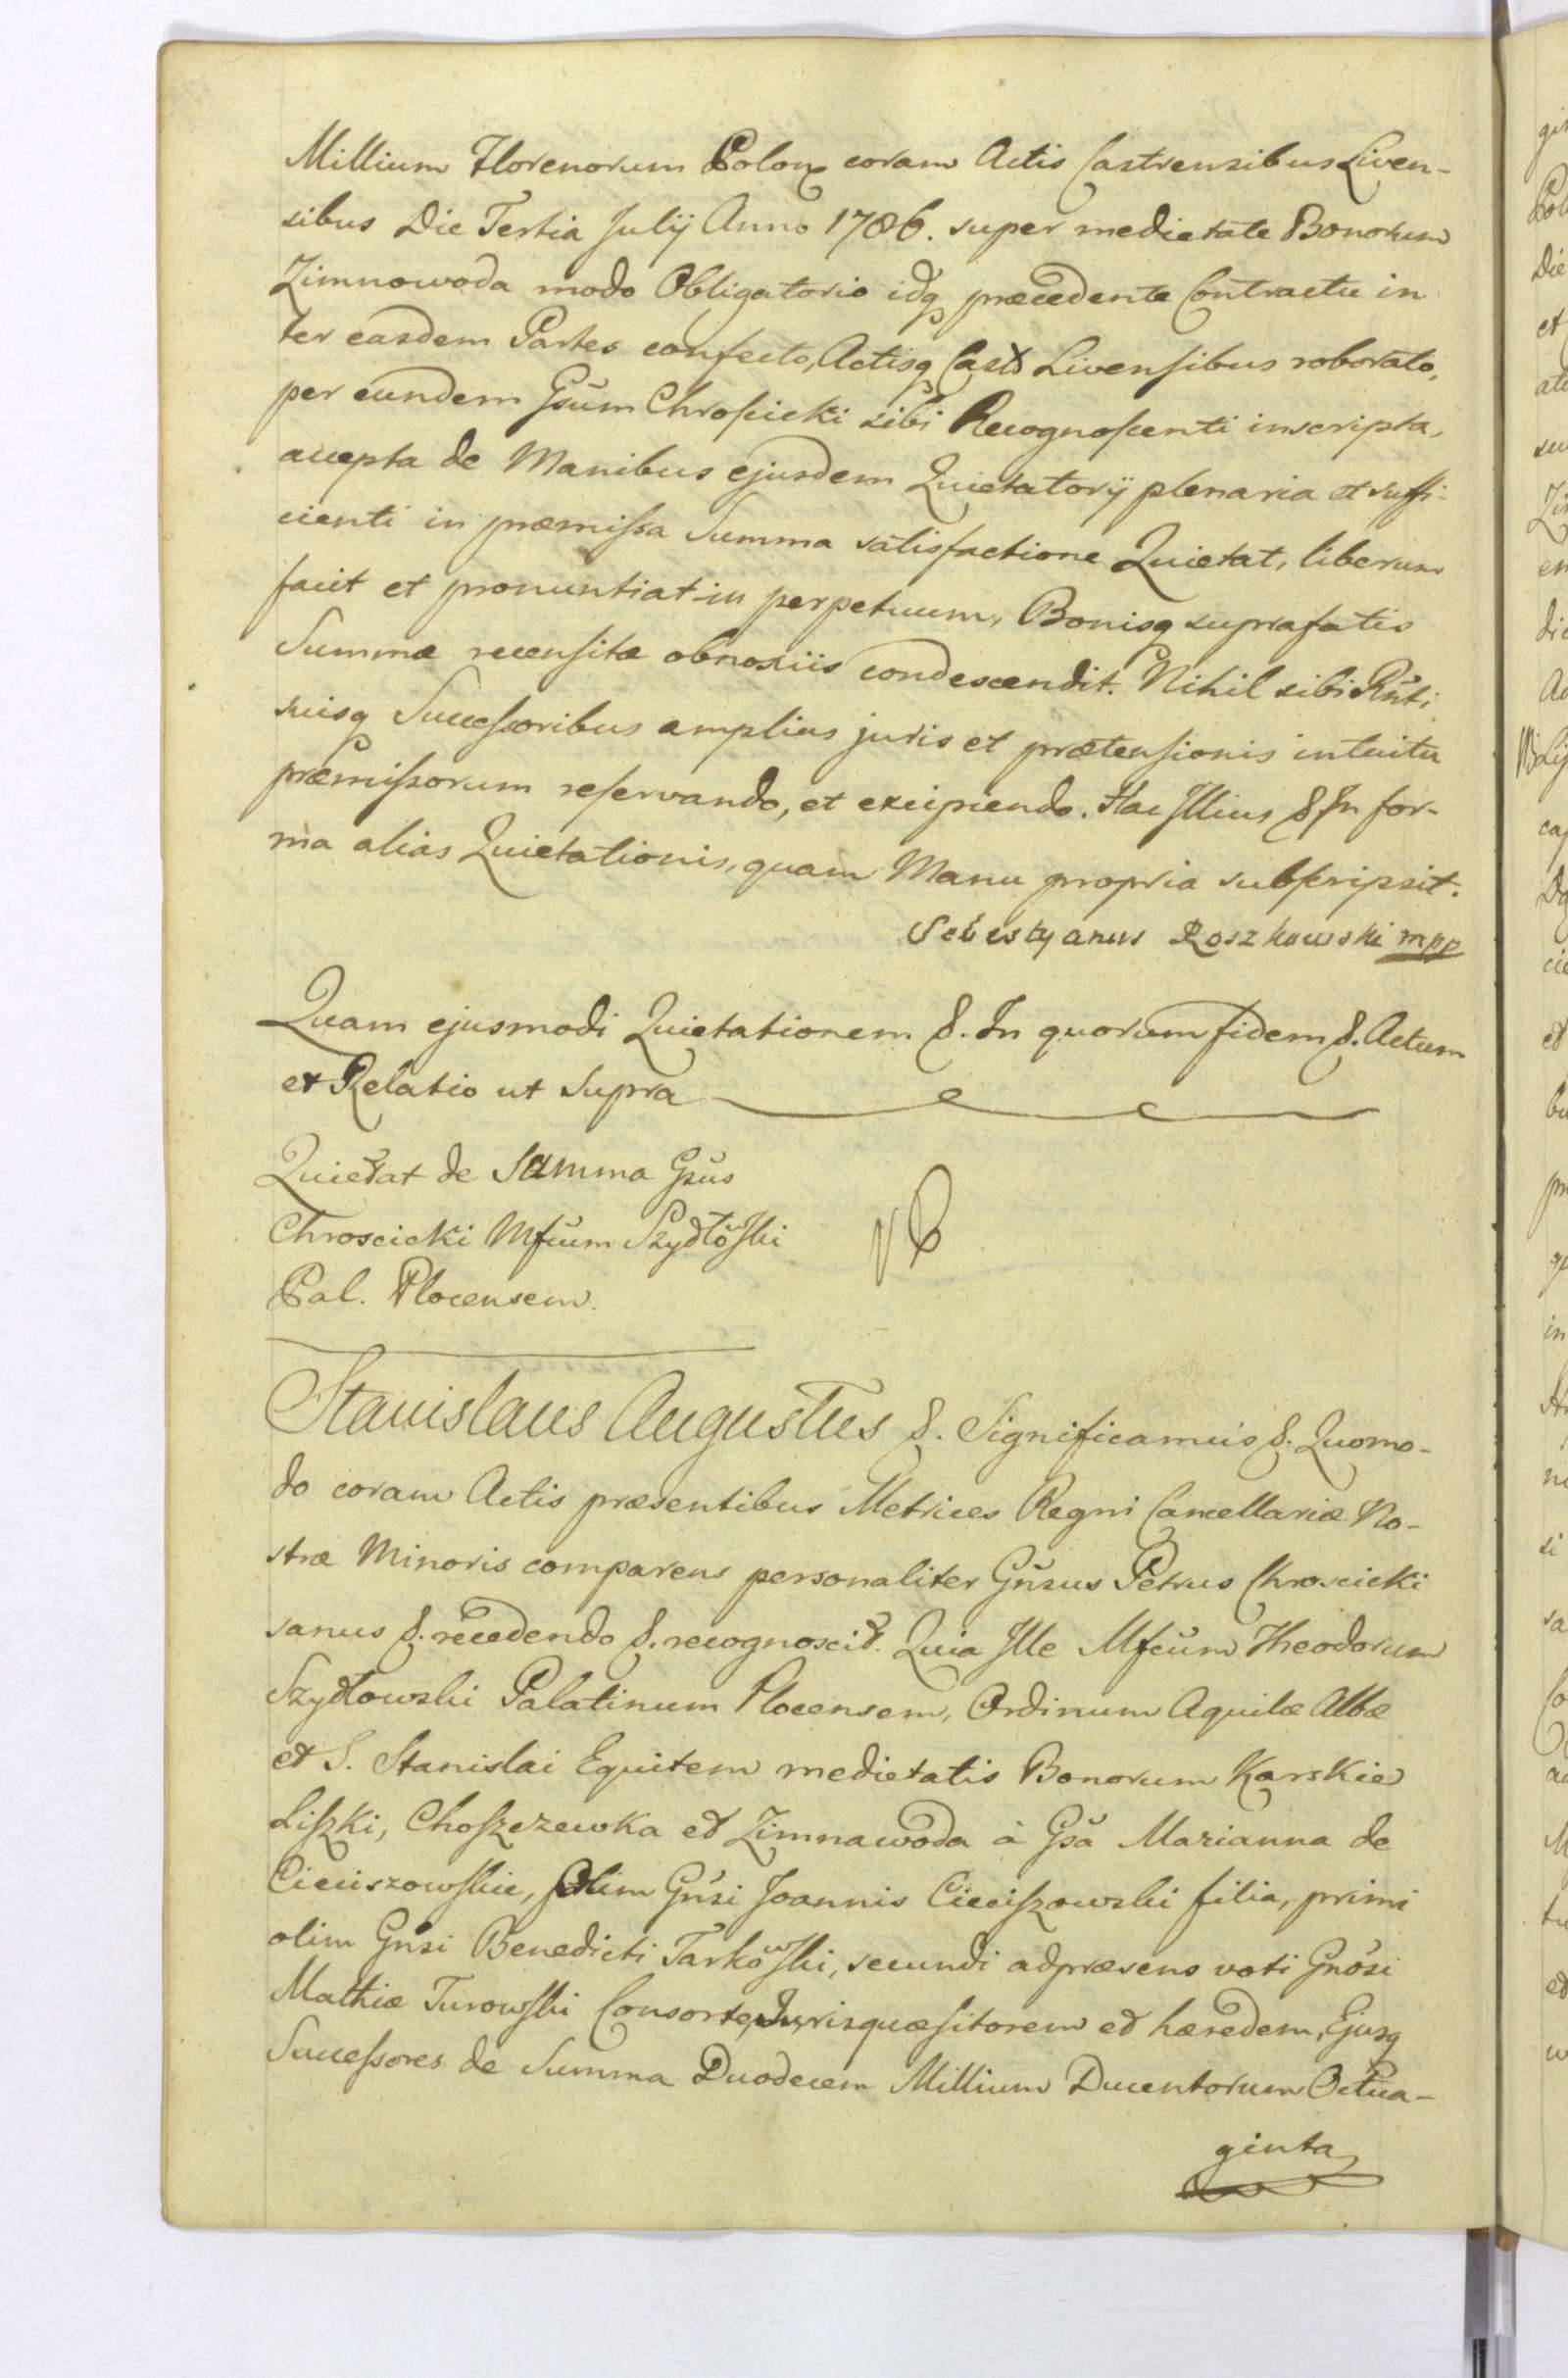 Millium Florenorum Polon coram Actis Castrensibus Liven-
sibus Die Tertia Julij Anno 1786. super medietate Bonorum
Zimnowoda modo Obligatorio idq præcedente Contractu in
ter easdem Partes confecto, Actisq Cast Livensibus roborato,
per eundem Gsum Chroscicki sibi Recognoscenti inscripta,
accepta de Manibus ejusdem Quietatorij plenaria et suffi-
cienti in præmissa Summa satisfactione Quietat, liberum
facit et pronuntiat in perpetuum, Bonisq suprafatis
Summæ recensitæ obnoxiis condescendit. Nihil sibi Rnti
suisq Successoribus amplius juris et prætensionis intuitu
præmissorum reservando, et excipiendo. Hac Illius & In for-
ma alias Quietationis, quam Manu propria subscripsit.
Sebestyanus Roszkowski mpp
Quam ejusmodi Quietationem &. In quorum fidem &. Actum
et Relatio ut Supra
Quietat de Summa Gsus
Chroscicki Mfcum Szydłowski
Pal. Plocensem.
Stanislaus Augustus &. Significamus &. Quomo-
do coram Actis præsentibus Metrices Regni Cancellariæ No-
stræ Minoris comparens personaliter Gnsus Petrus Chroscicki
sanus &. recedendo &. recognoscit. Quia Ille Mfcum Theodorum
Szydłowski Palatinum Plocensem, Ordinum Aquilæ Albæ
et S. Stanislai Equitem medietatis Bonorum Karskie
Liszki, Choszczewka et Zimnawoda à Gsa Marianna de
Cieciszowskie, olim Gnsi Joannis Cieciszowski filia, primi
olim Gnsi Benedicti Tarkowski, secundi adpræsens voti Gnosi
Mathiæ Turowski Consorte, Jurisquæsitorem et hæredem, Ejusq
Successores de Summa Duodecem Millium Ducentorum Octua-
ginta